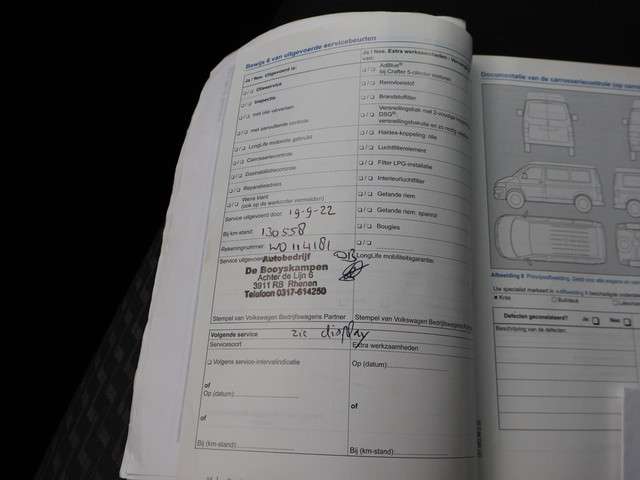 Bewijs 6 van uitgevoerde servicebeurten
Ja / Nee. Uitgevoerd is:
❑ / ❑ Olieservice
❑ / ❑ Inspectie
❑ / ❑ met olie verversen
❑ / ❑ met aanvullende controle
❑ / ❑ LongLife motorolie gebruikt
❑ / ❑ Carrosseriecontrole
❑ / ❑ Gasinstallatiecontrole
❑ / ❑ Reparatieadvies
❑ / ❑ Wens klant
(ook op de werkorder vermelden)
Service uitgevoerd door: 19-9-22
Bij km-stand: 130558
Rekeningnummer: WO114181
Service uitgevoerd
Autobedrijf
De Booyskampen
Achter de Lijn 6
3911 RS Rhenen
Telefoon 0317-614250
Stempel van Volkswagen Bedrijfswagens Partner
Ja / Nee. Extra werkzaamheden
van:
❑ / ❑ AdBlue®
bij Crafter 5-cilinder
❑ / ❑ Remvloeistof
❑ / ❑ Brandstoffilter
Versnellingsbak met 2-voudige
❑ / ❑ DSG®:
versnellingsbakolie en zo nodig
❑ / ❑ Haldex-koppeling: olie
❑ / ❑ Luchtfilterelement
❑ / ❑ Filter LPG-installatie
❑ / ❑ Interieurluchtfilter
❑ / ❑ Getande riem
❑ / ❑ Getande riem: spanrol
❑ / ❑ Bougies
❑ / ❑
LongLife mobiliteitsgarantie:
Stempel van Volkswagen Bedrijfswagens Partner
Volgende service zie display
Servicesoort
❑ Volgens service-intervalindicatie
of
Op (datum):
of
Bij (km-stand):
Extra werkzaamheden
Op (datum):
of
Bij (km-stand):
Documentatie van de carrosseriecontrole
Afbeelding 6 Principeafbeelding: Geldt voor alle
Uw specialist markeert in
Kras
Buts/deuk
Defecten geconstateerd? Ja: ❑ Nee: ❑
Beschrijving van de defecten: